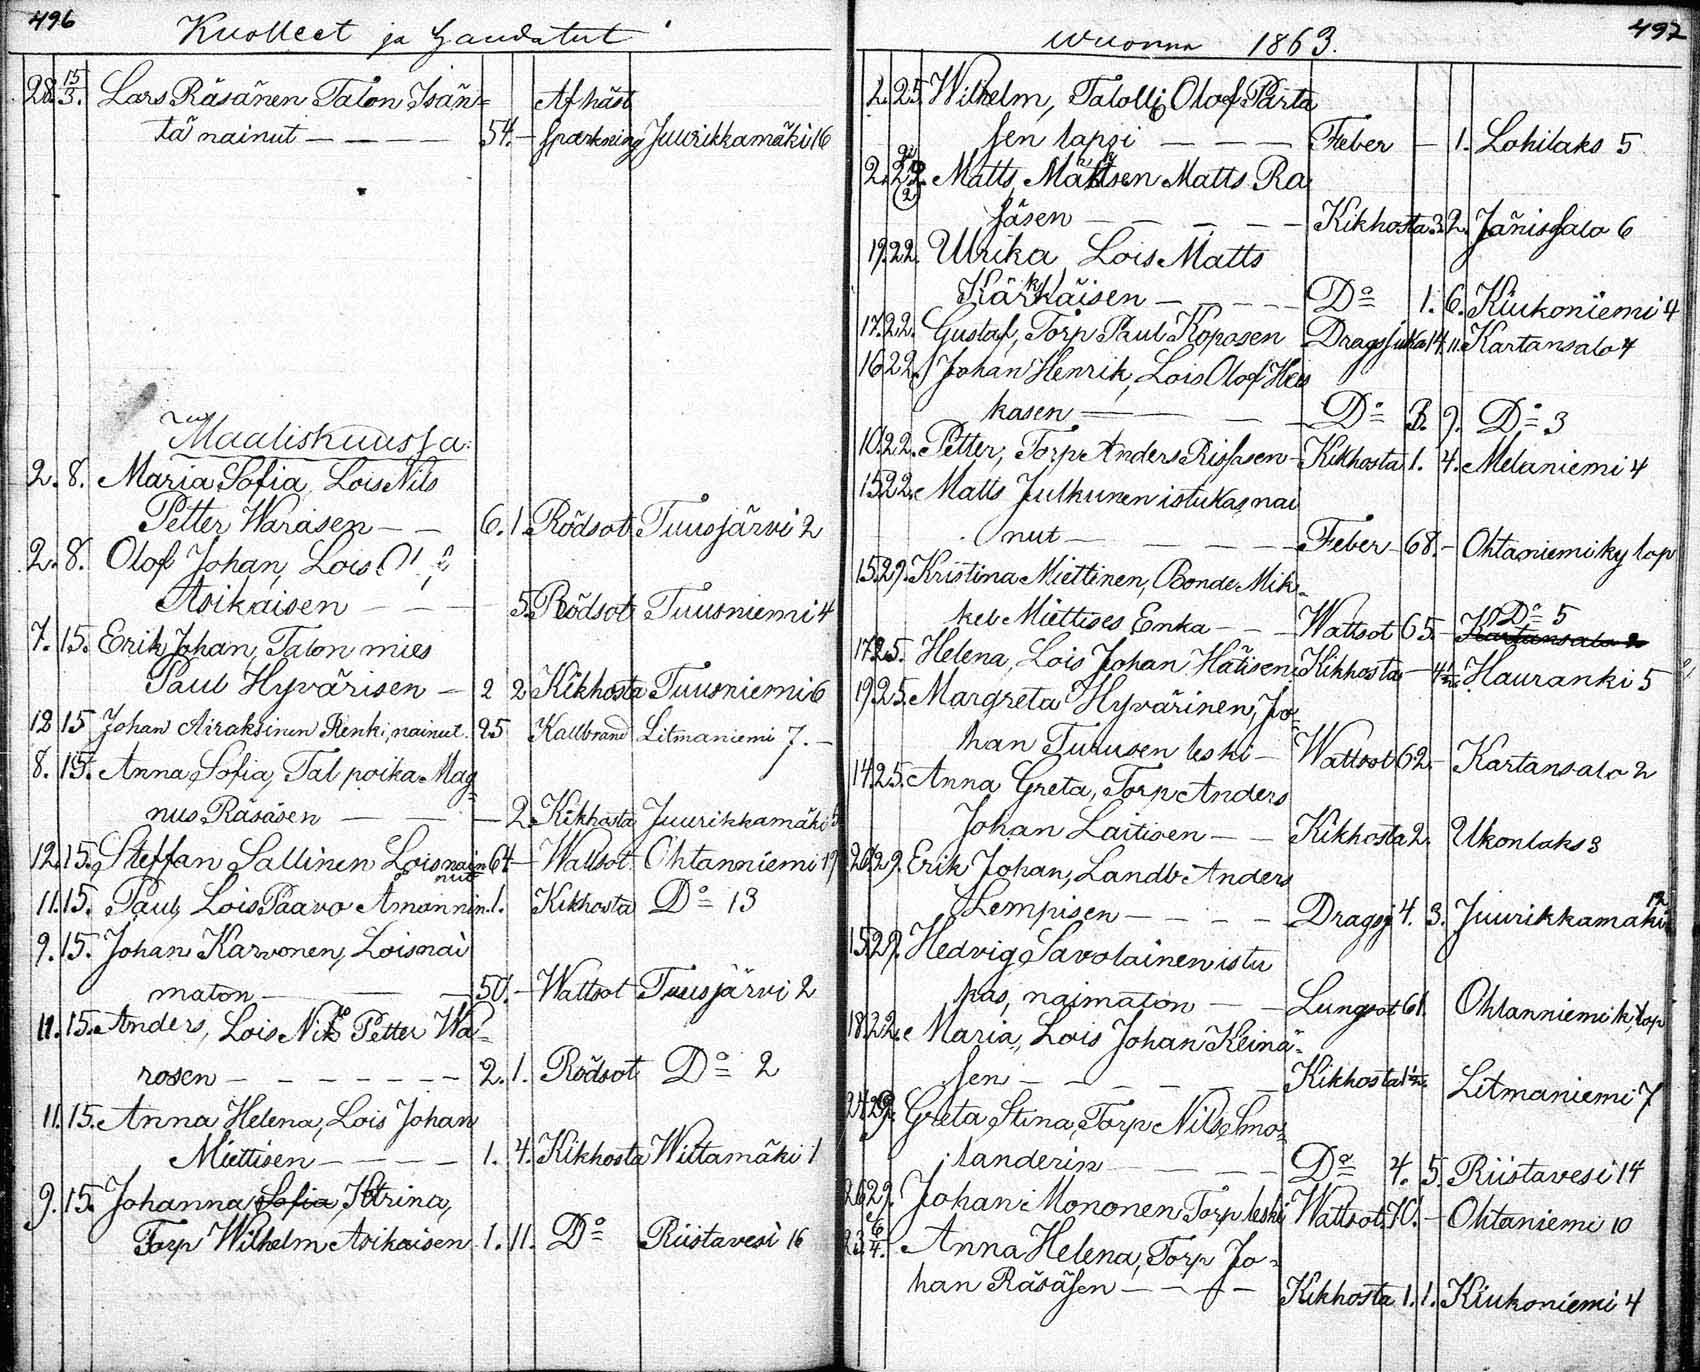 496
Kuolleet ja haudatut
28. 15/3. Lars Räsänen Talon Isän=
Af häst
tä nainut — — — — 54. — sparkning Juurikkamäki 16
Maaliskuussa.
2. 8. Maria Sofia, Lois Nils
Petter Warasen — — 6. 1. Rödsot Tuusjärvi 2
2. 8. Olof Johan, Lois
Asikaisen — — — 5. Rödsot Tuusniemi 4
7. 15. Erik Johan, Talon mies
Paul Hyvärisen — 2 2 Kikhosta Tuusniemi 6
12 15 Johan Airaksinen Renki, nainut. 25 Kallbrand Litmaniemi 7. —
8. 15. Anna Sofia, Tal poika Mag=
nus Räsäsen — — — 2. Kikhosta Juurikkamäki
12. 15. Steffan Sallinen Lois nai=
nut 64 — Wattsot Ohtanniemi 19
11. 15. Paul, Lois Paavo Amonnin. 1. Kikhosta Do 13
9. 15. Johan Karvonen, Lois nai
maton — — — 50. — Wattsot Tuusjärvi 2
11. 15. Anders, Lois Nils Petter Wa=
rosen — — — — — — 2. 1. Rödsot Do 2
11. 15. Anna Helena, Lois Johan
Miettisen — — — — 1. 4. Kikhosta Wiitamäki 1
9. 15. Johanna Sofia Ktrina,
Torp Wilhelm Asikaisen 1. 11. Do Riistavesi 16
497
wuonna 1863.
2. 25. Wilhelm, Talolli Olof Parta
sen lapsi — — — Feber — 1. Lohilaks 5
2. 22. Matts, Matts Ra
säsen — — — — — Kikhosta 3 2. Jänissalo 6
19. 22. Ulrika Lois Matts
Kärkäisen — — — — Do 1. 6. Kiukoniemi 4
17. 22. Gustaf, Torp Paul Koposen Dragsjuka 14. 11. Kartansalo 4
16 22. Johan Henrik, Lois Olof Heis
kasen — — — Do 3. 9. Do 3
10. 22. Petter, Torp Anders Rissasen — Kikhosta 1. 4. Melaniemi 4
15 22. Matts Julkunen istukas nai
nut — — — — — Feber — 68. — Ohtaniemi ky lop
15. 29. Kristina Miettinen, Bonde Mik=
kel Miettises Enka — — Wattsot 65. — Do 5
Kartansalo 2
17 25. Helena, Lois Johan Hätisen Kikhosta — 4 1/2 Hauranki 5
19. 25. Margreta Hyvärinen, Jo=
han Turusen leski — Wattsot 62. — Kartansalo 2
14. 25. Anna Greta, Torp Anders
Johan Laitisen — — Kikhosta 2. Ukonlaks 3
20. 29. Erik Johan, Landb Anders
Lempisen — — — — Dragsj 4. 3. Juurikkamäki 12
15. 29. Hedvig Savolainen istu
kas, naimaton — — Lungsot 61. Ohtanniemi k, lop
18. 22. Maria, Lois Johan Keinä=
sen — — — — — — Kikhosta 1 1/2 Litmaniemi 7
24. 29. Greta Stina, Torp Nils Smo=
landerin — — — — Do 4. 5. Riistavesi 14
26 29. Johan Mononen Torp leski Wattsot. 70. — Ohtaniemi 10
23. 6/4. Anna Helena, Torp Jo=
han Räsäsen — — — — Kikhosta 1. 1. Kiukoniemi 4